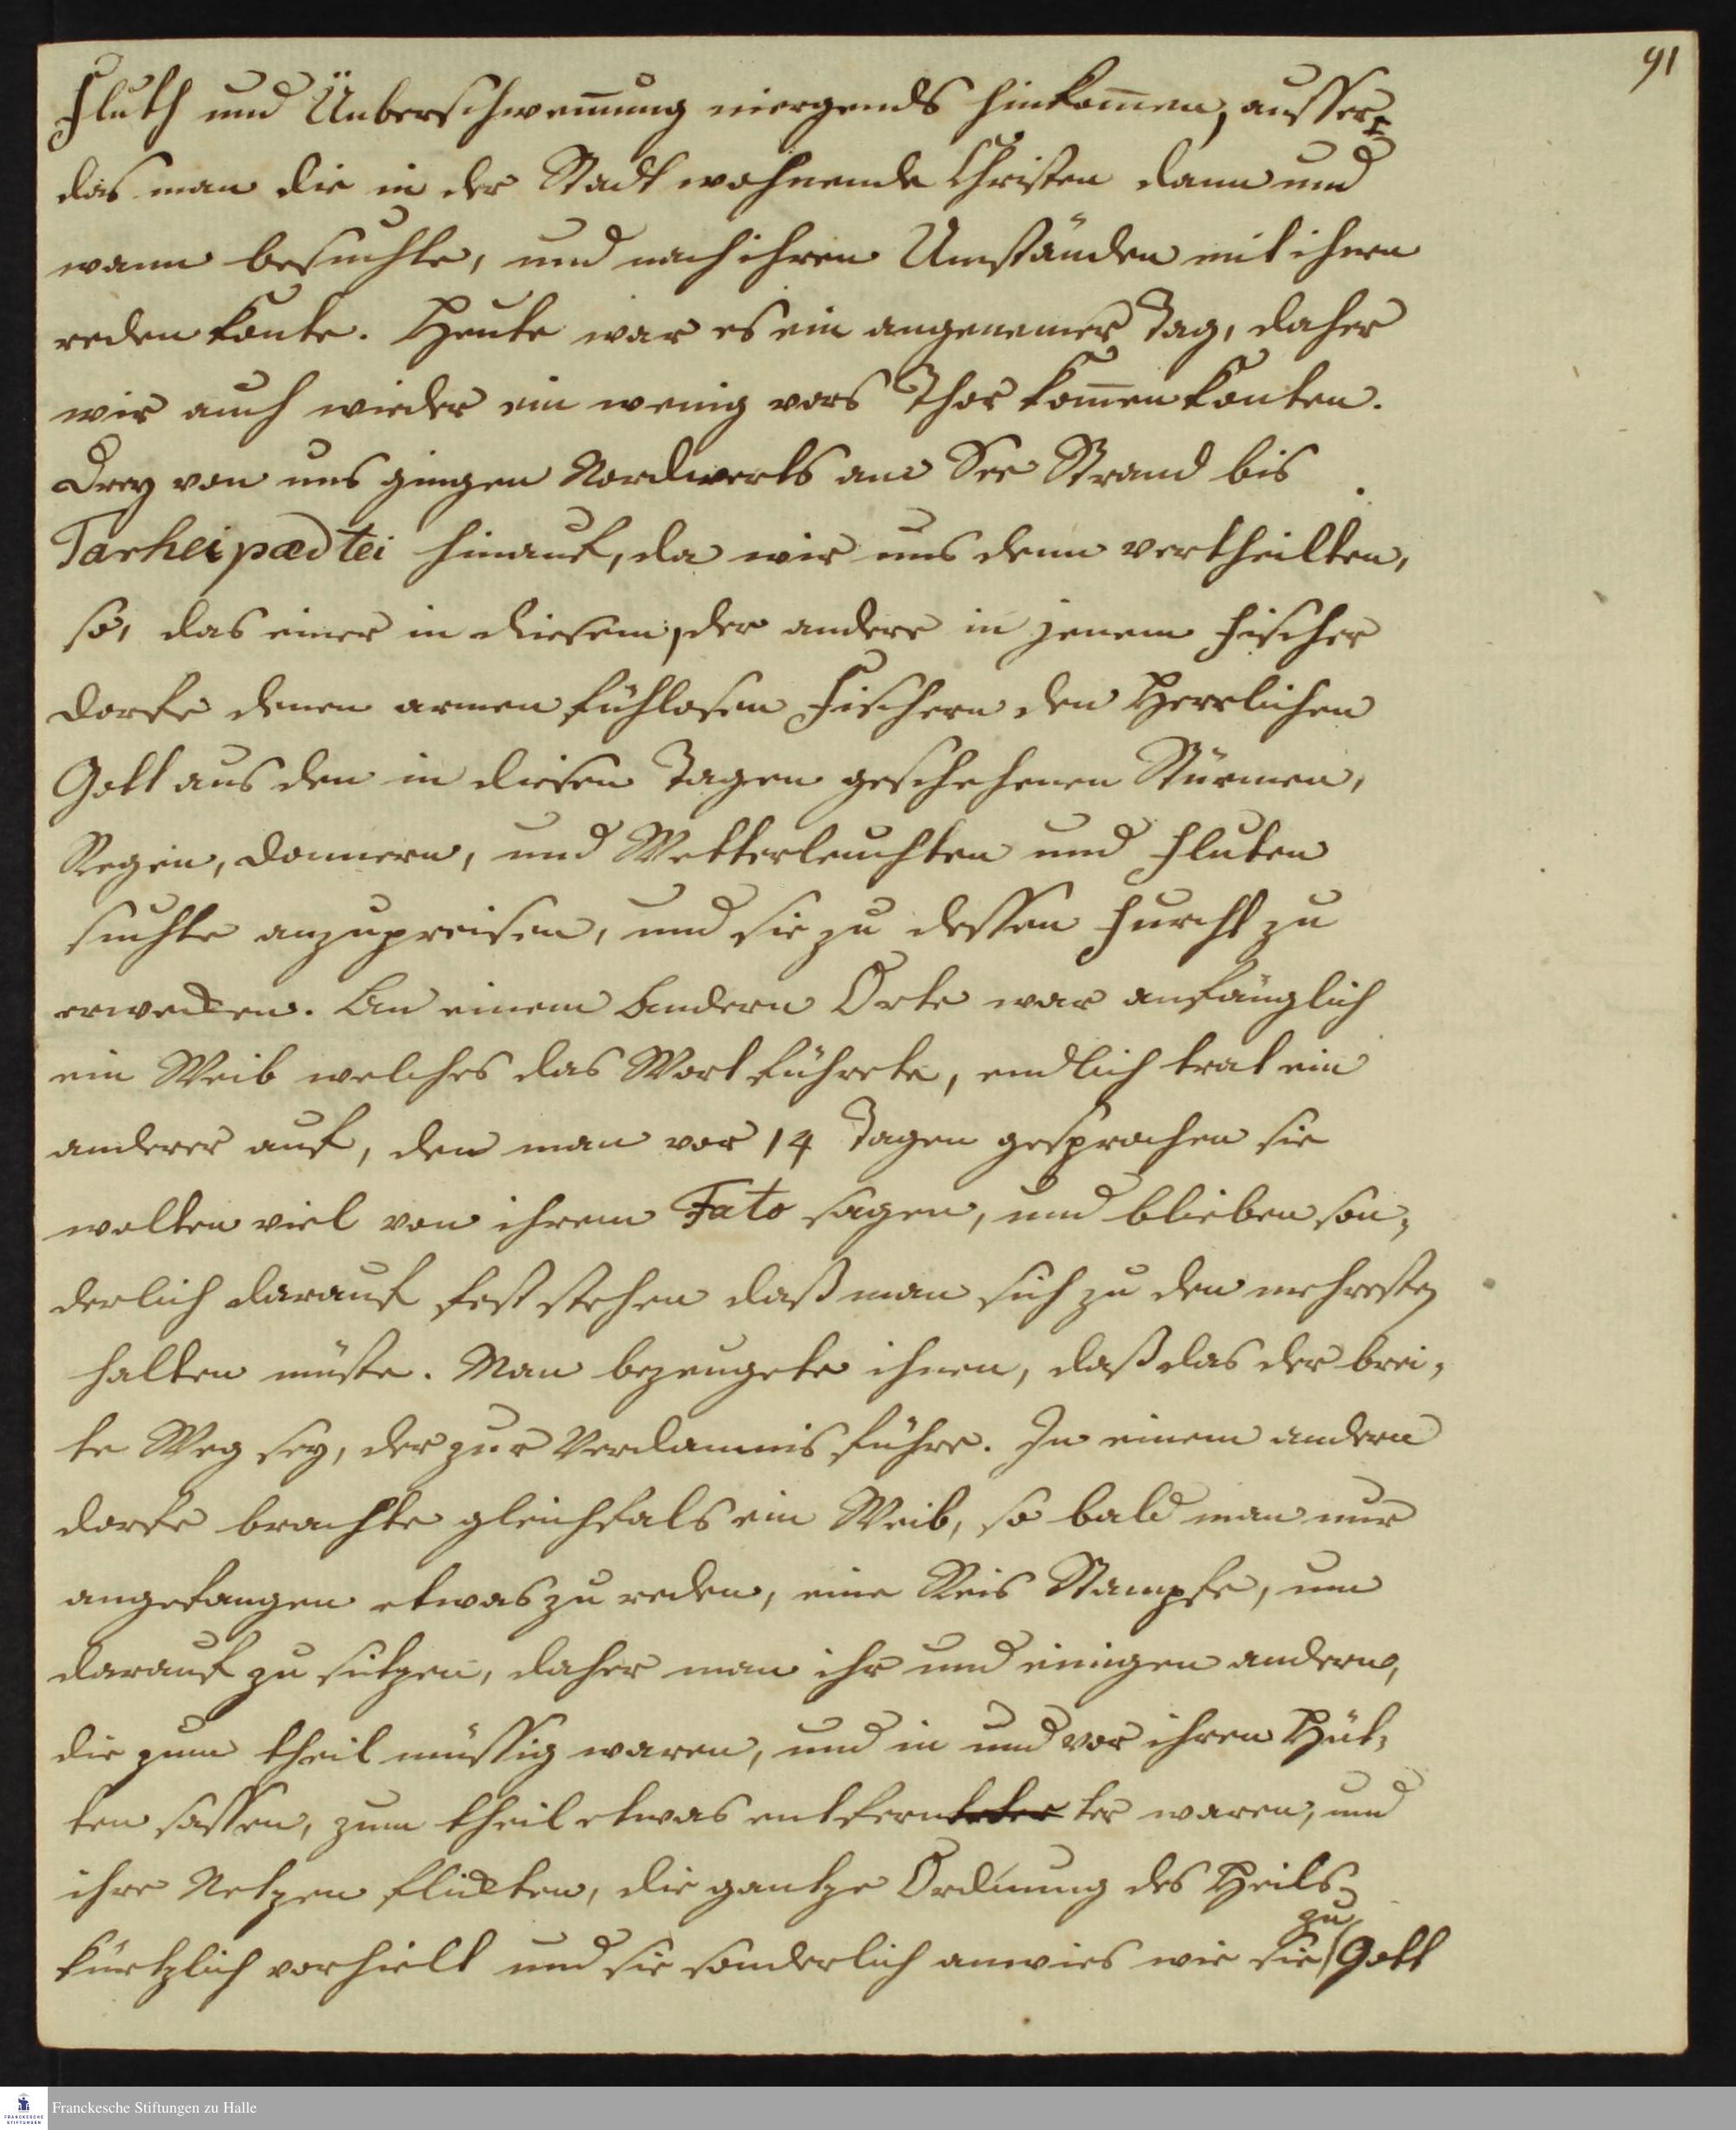 91
Fluth und Üeberschwem̄ung niergends hinkom̄en, ausser
das man die in der Stadt wohnende Christen dann und
wann besuchte, und nach ihren Umständen mit ihnen
reden konte. Heute war es ein angenemer Tag, daher
wir auch wieder ein wenig vors Thor kom̄en konten.
Drey von uns gingen Nordwerts am See Strand bis
Tarheipædtei hinauf, da wir uns denn vertheilten,
so, das einer in diesem, der andere in jenem Fischer
dorfe denen armen fühlosen Fischern den Herrlichen
Gott aus den in diesen Tagen geschehenen Stürmen,
Regen, donnern, und Wetterleuchten und Fluten
suchte anzupreisen, und sie zu dessen Furcht zu
erwecken. An einem andern Orte war anfänglich
ein Weib welches das Wort führete, endlich trat ein
anderer auf, den man vor 14 Tagen gesprochen sie
wolten viel von ihrem Fato sagen, und blieben son,
derlich darauf fest stehen daß man sich zu den mehresten
halten müste. Man bezeugete ihnen, daß das der brei,
te Weg sey, der zur Verdamnis führe. In einem andern
dorfe brachte gleichfals ein Weib, so bald man nur
angefangen etwas zu reden, eine Reis Stampfe, um
darauf zu sitzen, daher man ihr und einigen andern,
die zum theil müssig waren, und in und vor ihren Hüt,
ten sassen, zum theil etwas entfernter waren, und
ihre Netzen flickten, die gantze Ordnung des Heils
kürtzlich vorhielt und sie sonderlich anwies wie sie zu Gott
Franckesche Stiftungen zu Halle